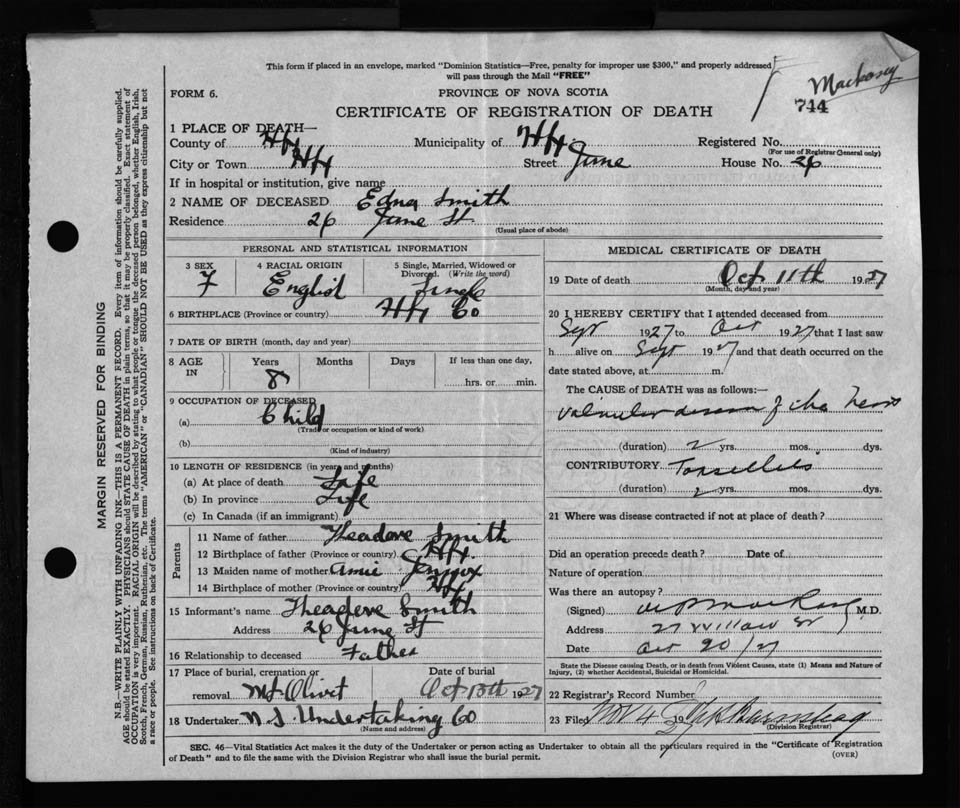 This form if placed in an envelope, marked "Dominion Statistics—Free, penalty for improper use $300," and properly addressed
will pass through the Mail "FREE"
Mackasey
744
FORM 6. PROVINCE OF NOVA SCOTIA
CERTIFICATE OF REGISTRATION OF DEATH
1 PLACE OF DEATH—
County of Hfx Municipality of Hfx Registered No.
(For use of Registrar General only)
City or Town Hfx Street June House No. 26
If in hospital or institution, give name
2 NAME OF DECEASED Edna Smith
Residence 26 June St
(Usual place of abode)
PERSONAL AND STATISTICAL INFORMATION
3 SEX 4 RACIAL ORIGIN 5 Single, Married, Widowed or Divorced. (Write the word)
F English Single
6 BIRTHPLACE (Province or country) Hfx Co
7 DATE OF BIRTH (month, day and year)
8 AGE IN Years Months Days If less than one day,
8 hrs. or min.
9 OCCUPATION OF DECEASED
(a) Child
(Trade or occupation or kind of work)
(b)
(Kind of industry)
10 LENGTH OF RESIDENCE (in years and months)
(a) At place of death Life
(b) In province Life
(c) In Canada (if an immigrant)
Parents
11 Name of father Theadore Smith
12 Birthplace of father (Province or country) Hfx.
13 Maiden name of mother Amie
14 Birthplace of mother (Province or country) Hfx
15 Informant's name Theadore Smith
Address 26 June St
16 Relationship to deceased Father
17 Place of burial, cremation or removal Mt Olivet
Date of burial Oct 13th 1927
18 Undertaker N.S. Undertaking Co
(Name and address)
MEDICAL CERTIFICATE OF DEATH
19 Date of death Oct 11th 1927
(Month, day and year)
20 I HEREBY CERTIFY that I attended deceased from
Sept 1927 to Oct 1927 that I last saw
h alive on Sept 1927 and that death occurred on the
date stated above, at m.
The CAUSE of DEATH was as follows:—
Valvular disease of the heart
(duration) 2 yrs. mos. dys.
CONTRIBUTORY
(duration) 2 yrs. mos. dys.
21 Where was disease contracted if not at place of death?
Did an operation precede death? Date of
Nature of operation
Was there an autopsy?
(Signed) M.D.
Address 27 Willow St
Date Oct 20/27
State the Disease causing Death, or in death from Violent Causes, state (1) Means and Nature of
Injury, (2) whether Accidental, Suicidal or Homicidal.
22 Registrar's Record Number
23 Filed Nov 4 1927
(Division Registrar)
SEC. 46—Vital Statistics Act makes it the duty of the Undertaker or person acting as Undertaker to obtain all the particulars required in the "Certificate of Registration
of Death" and to file the same with the Division Registrar who shall issue the burial permit.
(OVER)
MARGIN RESERVED FOR BINDING
N.B.—WRITE PLAINLY WITH UNFADING INK—THIS IS A PERMANENT RECORD. Every item of information should be carefully supplied.
AGE should be stated EXACTLY. PHYSICIANS should STATE CAUSE OF DEATH in plain terms, so that it may be properly classified. Exact statement of
OCCUPATION is very important. RACIAL ORIGIN will be described by stating to what people or tongue the deceased person belonged, whether English, Irish,
Scotch, French, German, Russian, Ruthenian, etc. The terms "AMERICAN" or "CANADIAN" SHOULD NOT BE USED as they express citizenship but not
a race or people. See instructions on back of Certificate.